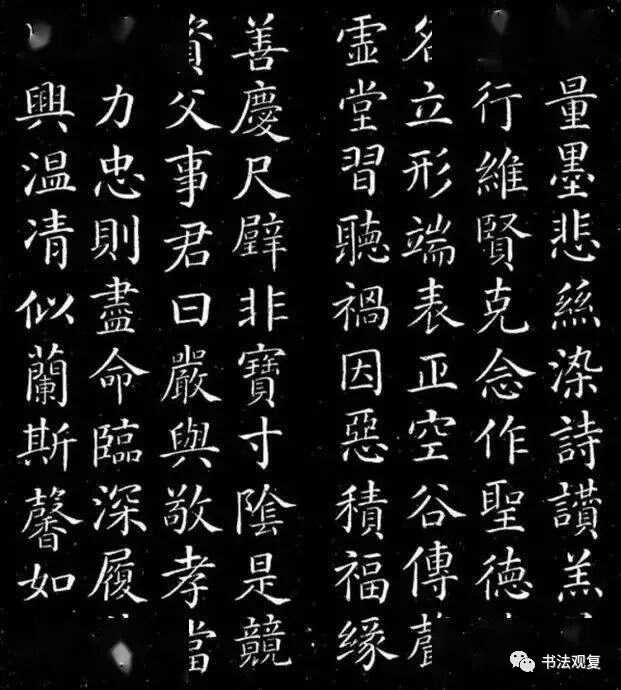 量墨悲絲染詩讃羔
行維賢克念作聖德
名立形端表正空谷傳聲
虚堂習聽禍因惡積福緣
善慶尺璧非寶寸陰是競
資父事君曰嚴與敬孝當
力忠則盡命臨深履
興温凊似蘭斯馨如
书法观复